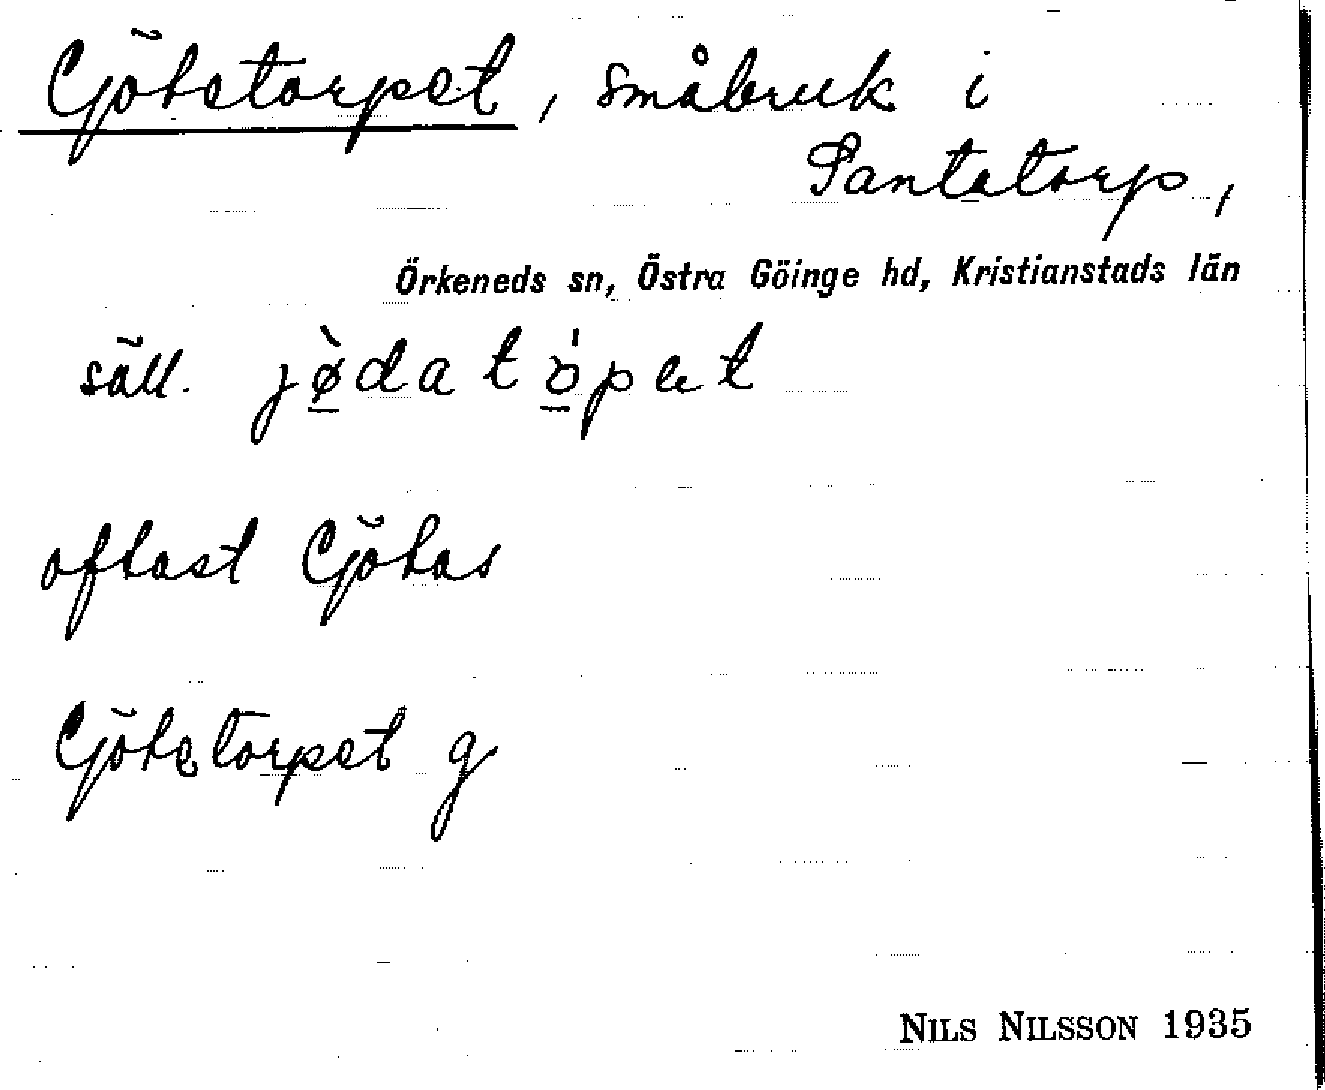 Götatorpet, småbruk i
Santatorp,
Örkeneds sn, Östra Göinge hd, Kristianstads län
säll. jø̀datópet
oftast Götas
Götatorpet g
NILS NILSSON 1935